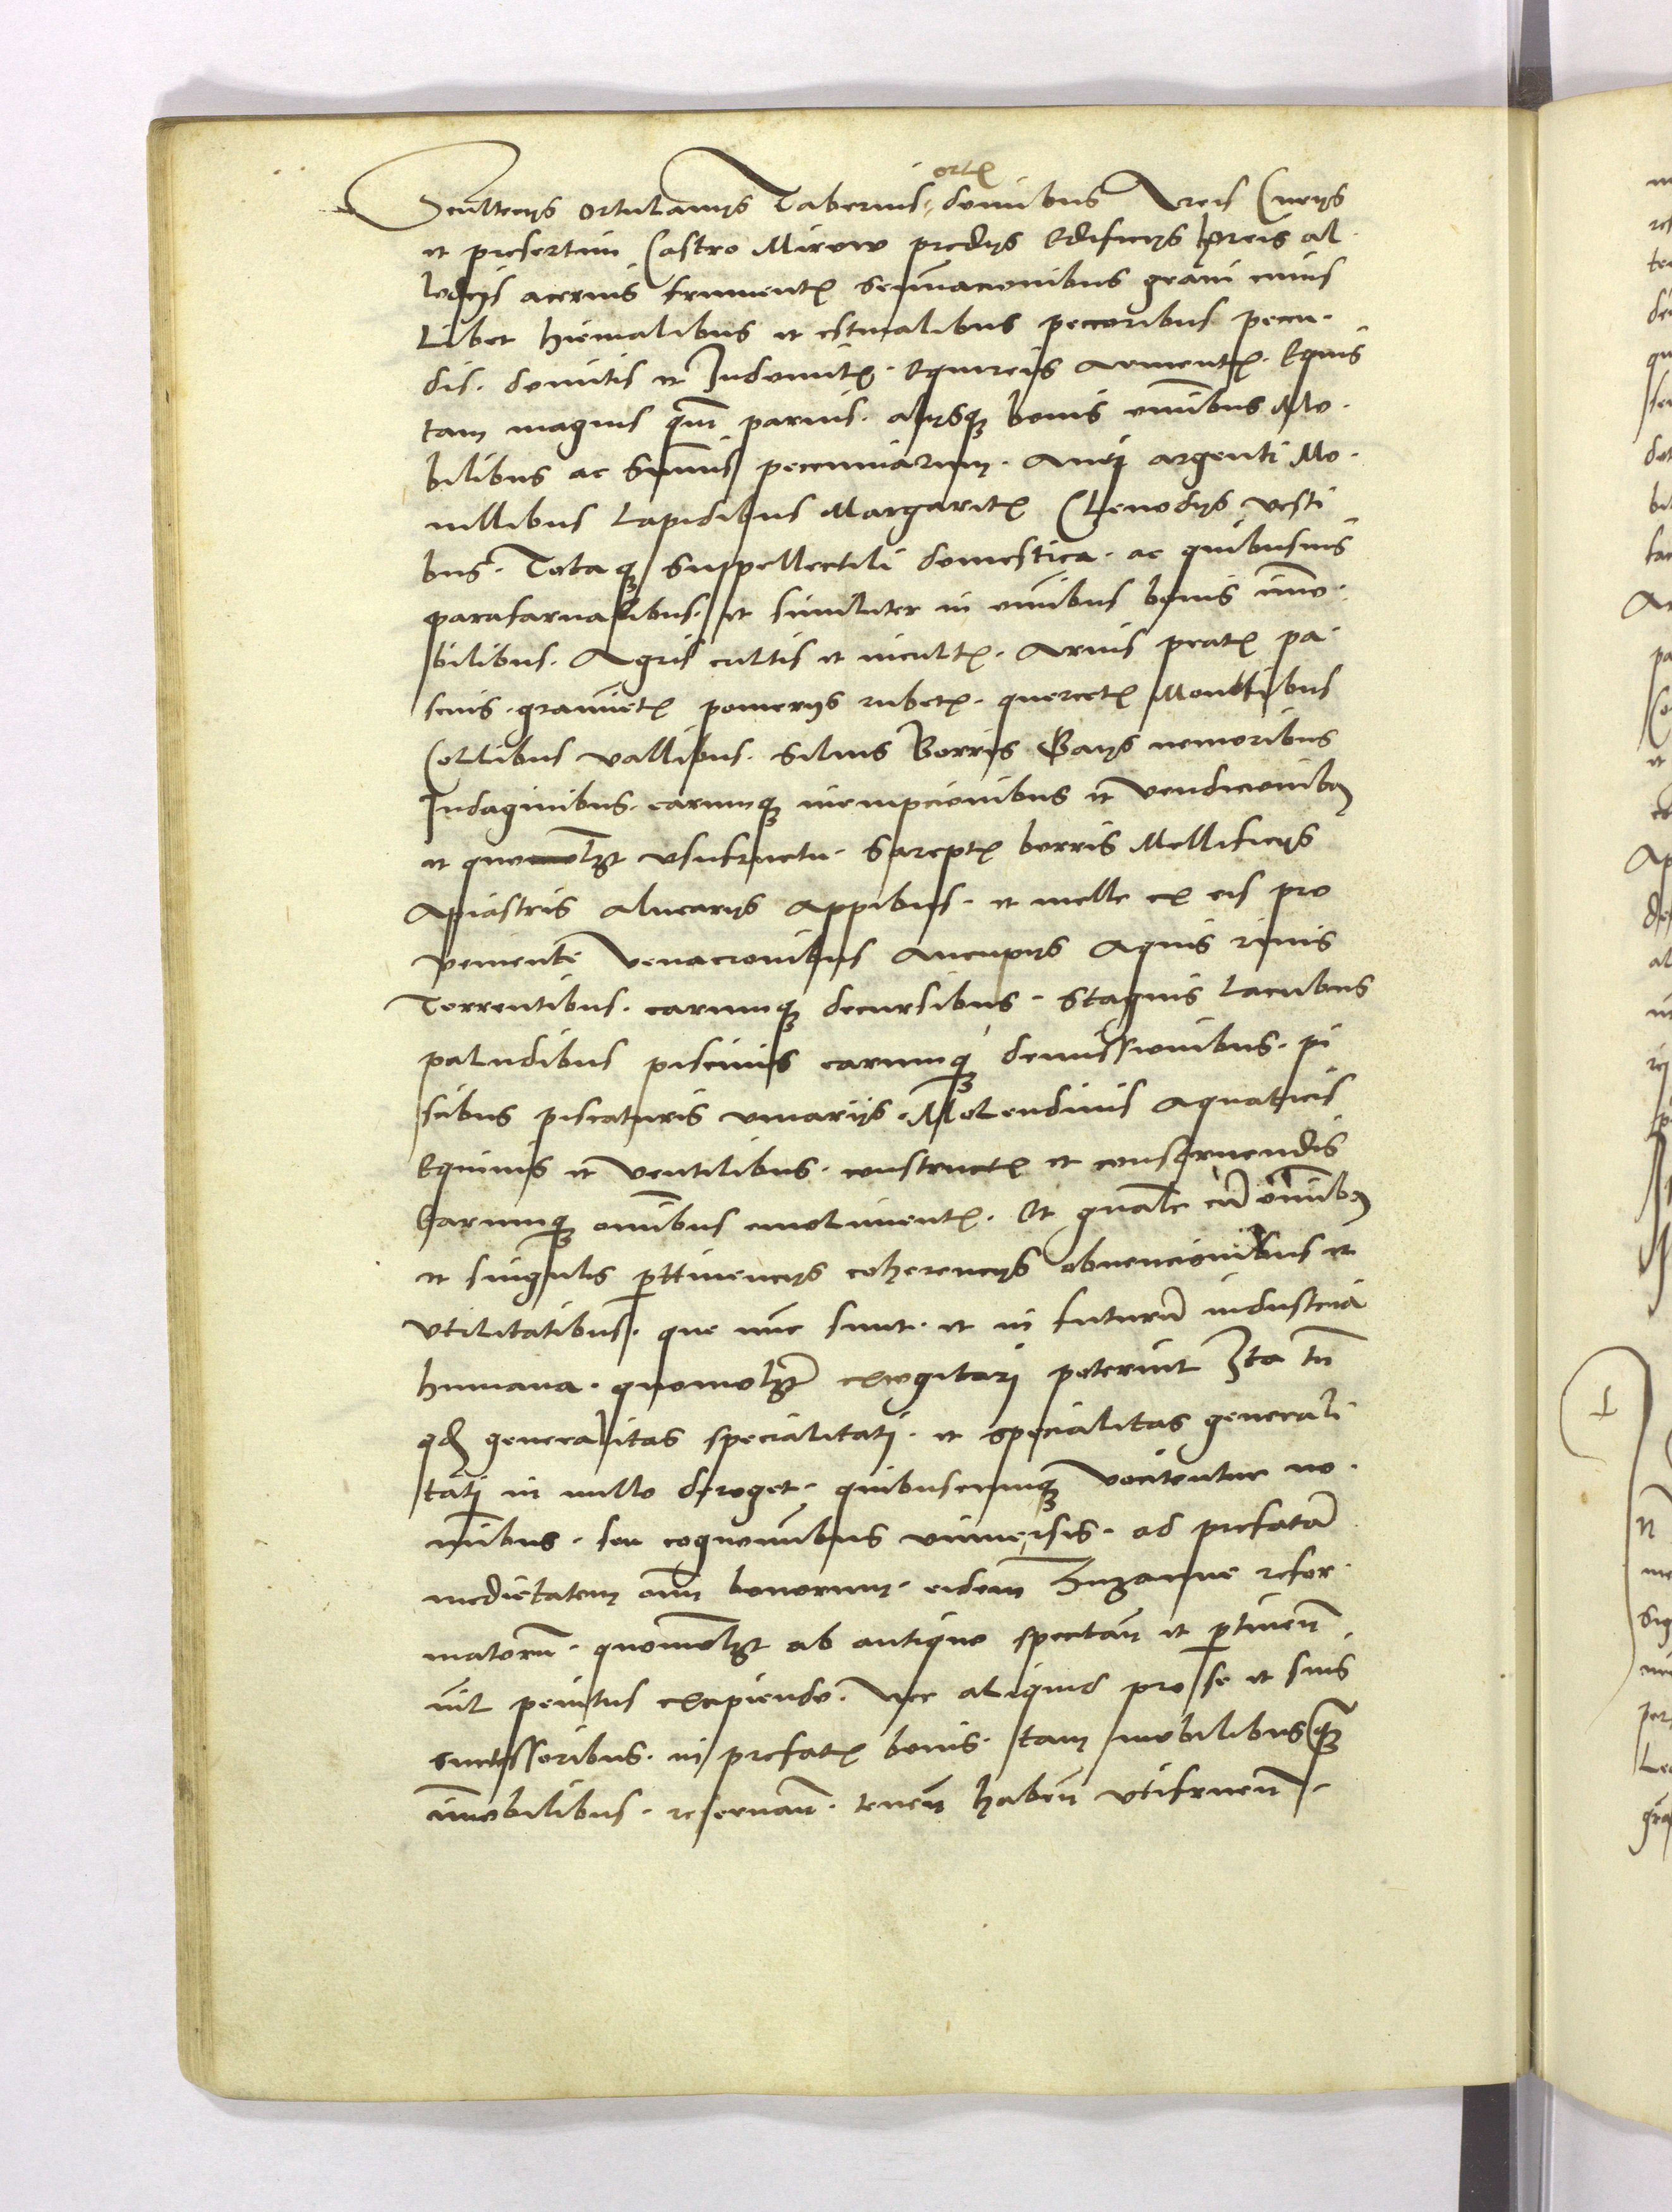 ortis
Scultecijs ortulanijs Tabernis domibus Areis Curijs
et presertim Castro Mirow predijs Edificijs horreis al
lodijs acervis frumentis seminacionibus grani cuius
Libet hiemalibus et estivalibus peccoribus pecu
dis. domitis et Indomitis. Equireis armentis. Equis
tam magnis quam parvis. alijsque bonis omnibus Mo
bilibus ac summis pecuniarum. Auri argenti Mo
nillibus Lapidibus Margaritis Clenodijs vesti
bus. Totaque Suppellectili domestica. ac quibusvis
parafarnalibus. et similiter in omnibus bonis immo
bilibus. Agris cultis et incultis. Arvis pratis pa
scuis. graminetis pomerijs rubetis. quercetis Montibus
Collibus vallibus. Silvis Borris Gaijs nemoribus
Indaginibus. earumque inempcionibus et vendicionibus
et quomolibet usufructu. Sareptis borris Mellificijs
Apiastris alvearijs appibus. et melle ex eis pro
veniente Venacionibus Aucupijs Aquis rivis
Torrentibus. earumque decursibus. Stagnis Lacubus
paludibus piscinis earumque demissionibus. pi
scibus piscaturis vivarijs. Molendinis aquaticis
Equinis et ventilibus. constructis et construendis
Earumque omnibus emolimentis. Et generaliter cum omnibus
et singulis pertinencijs coherencijs obvencionibus et
Utilitatibus. que nunc sunt. et in futurum industria
humana. quomolibet excogitari poterint Ita tamen
quod generalitas specialitati. et specialitas generali
tati in nullo deroget. quibuscumque vocitentur no
minibus. seu cognominibus universis. ad prefatam
medietatem omnium bonorum. eidem Zuzanne refor
matorum. quomolibet ab antiquo spectan et pertinen
nil penitus excipiendo. Nec aliquid pro se et suis
successoribus. in prefatis bonis. tam mobilibus quam
immobilibus. reservan. tenen haben utifruen.